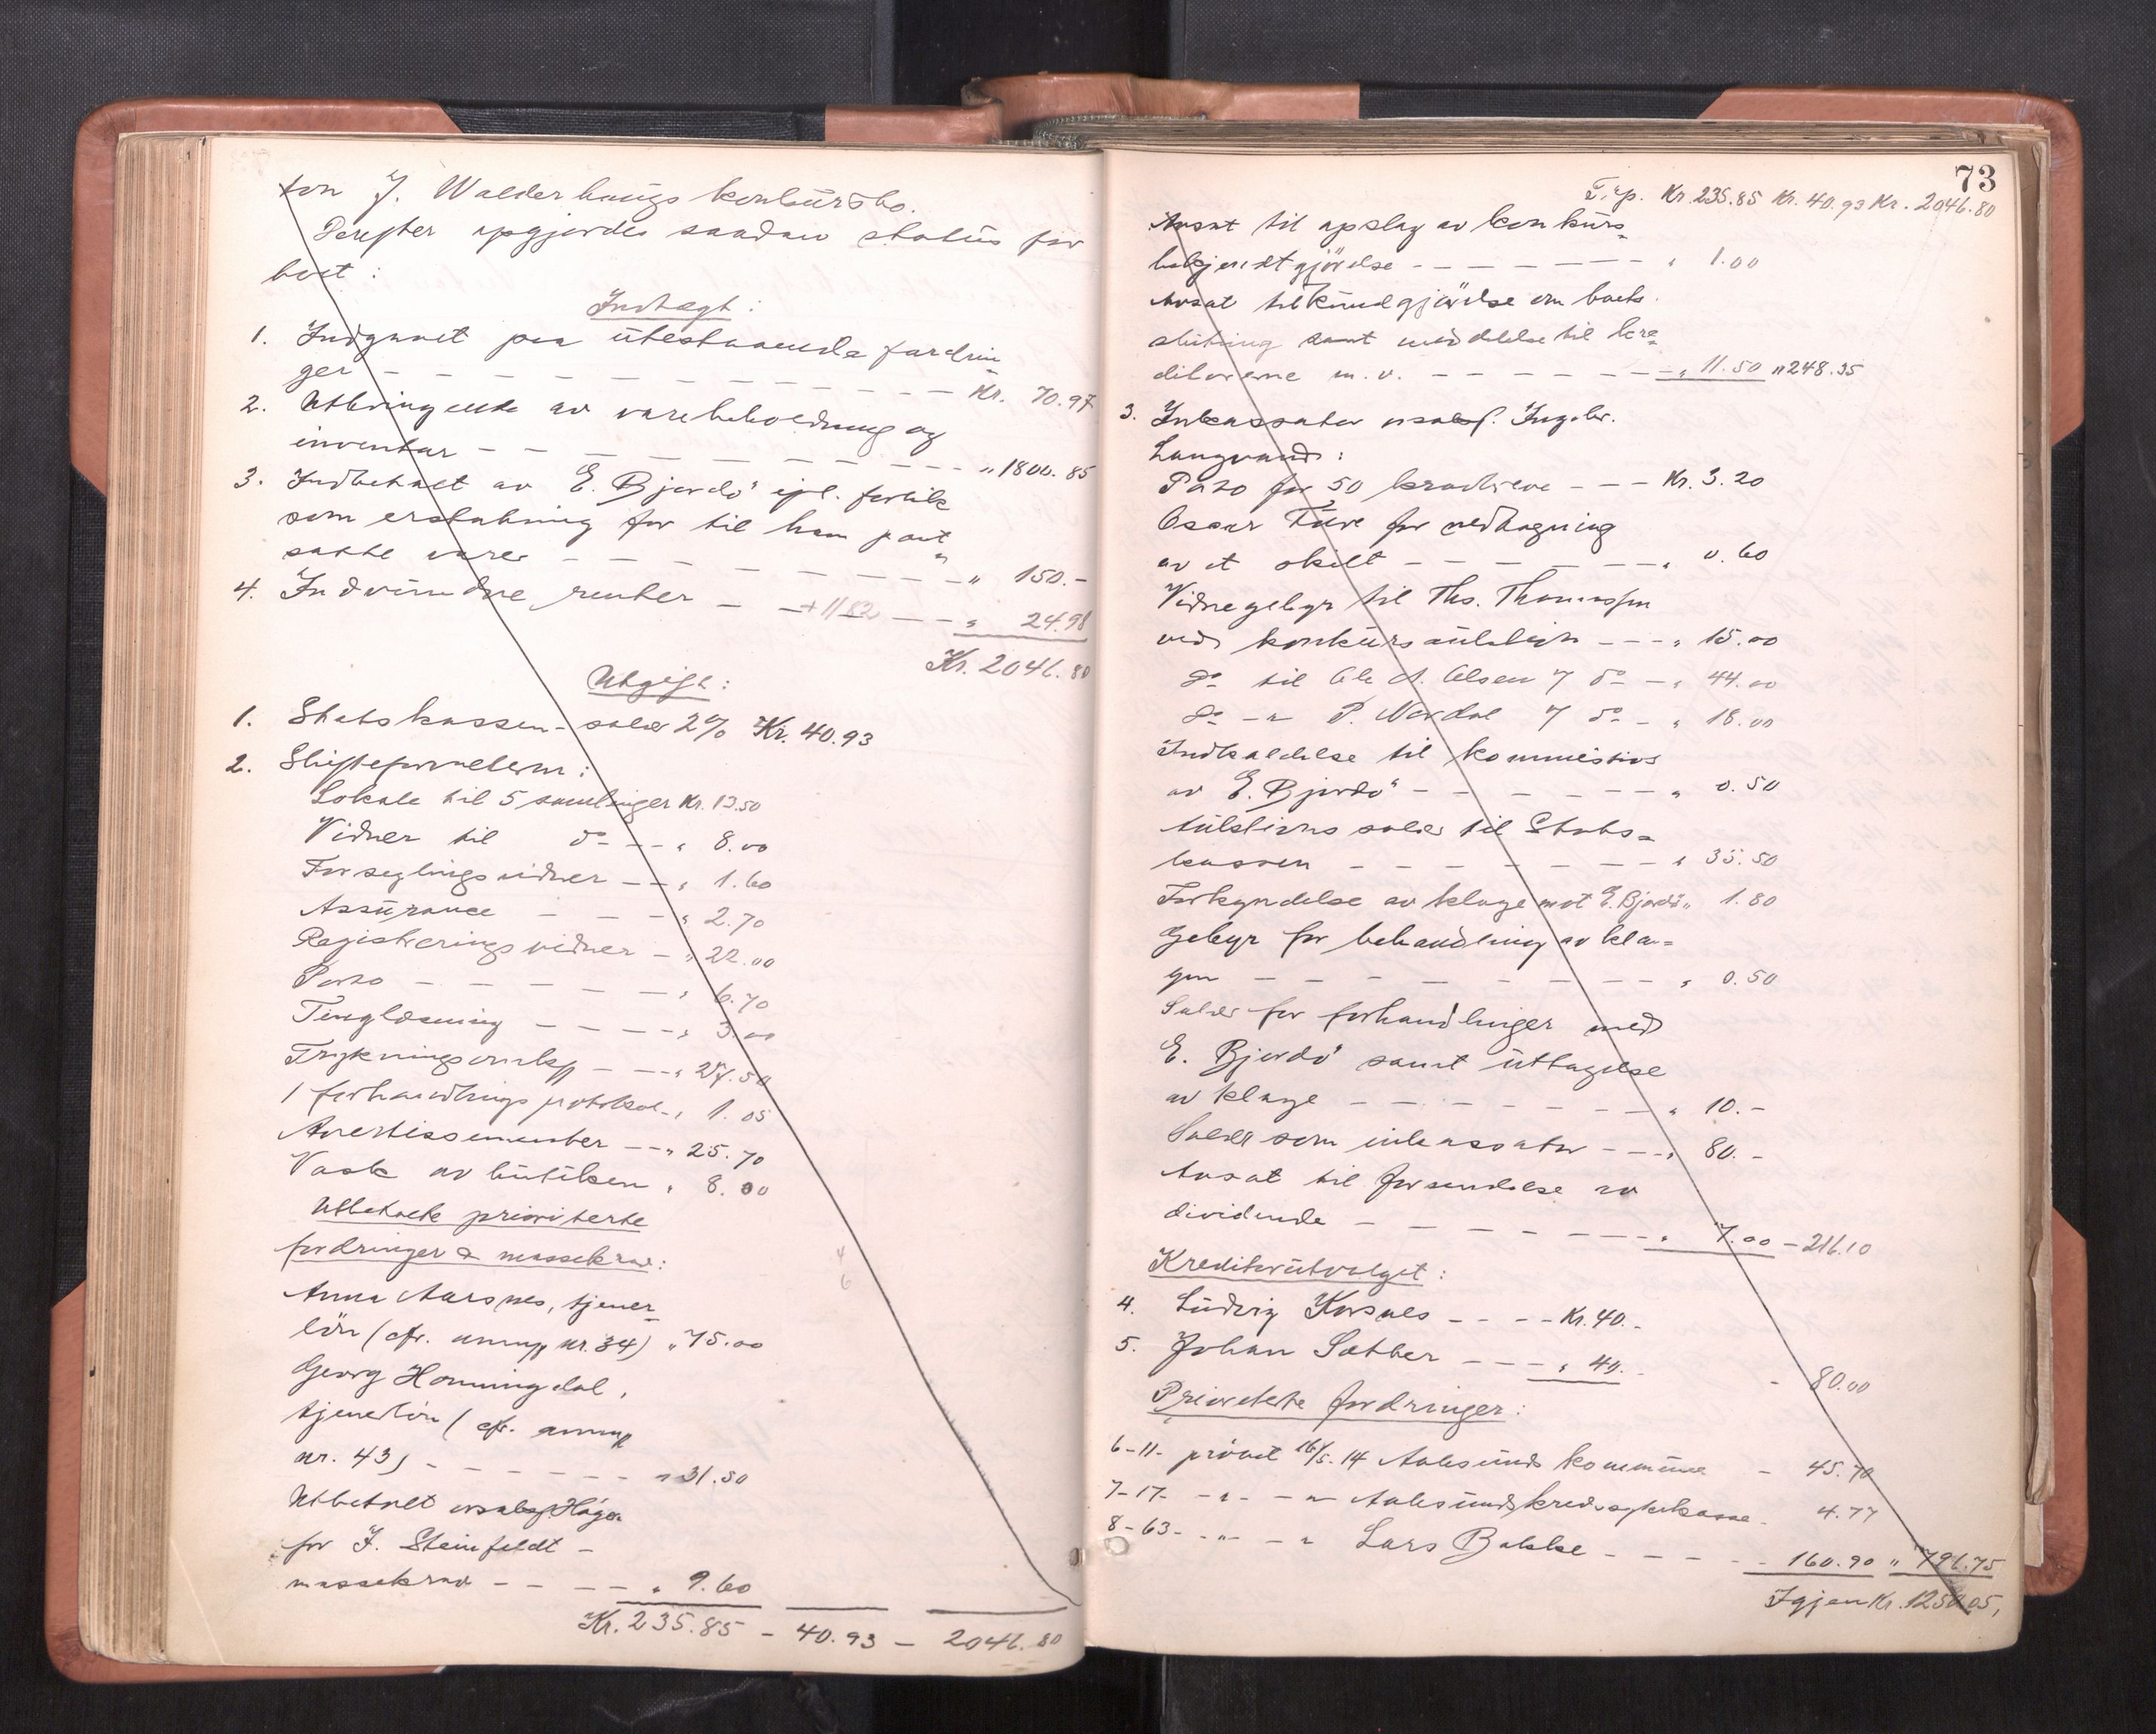 ton J. Walderhaugs konkursbo.
Derefter opgjordes saadan status for
boet:
Indtægt:
1. Indgaaet paa utestaaende fordrin
ger - - - - Kr. 70.97
2. Utbringende av varebeholdning og
inventar - - - - " 1800.85
3. Indbetalt av E. Bjordö ifl. forlik
som erstatning for til ham bort
satte varer - - - - " 150.-
4. Indvundne renter - - + 11 82 - - " 24.98
Kr. 2046.80
Utgift:
1. Statskassen - salær 2% Kr. 40.93
2. Skifteforvalteren:
Lokale til 5 samlinger Kr. 12.50
Vidner til do - - " 8.00
Forseglingsvidner - - " 1.60
Assurance - - - " 2.70
Registreringsvidner - " 22.00
Porto - - - - " 6.70
Tinglæsning - - - - " 3.00
Trykningsomkg - - - " 27.50
1 forhandlingsprotokol - " 1.05
Avertissementer - - " 25.70
Vask av butiken " 8.00
Utbetalte prioriterte
fordringer & massekrav:
Anna Aarsnes, tjener
lön (cfr. anmg nr. 34) " 75.00
Georg Honningdal,
tjenerlön (cfr. anmg
nr. 43) - - - - " 31.50
Utbetalt orsakf. Hagen
for J. Steinfeldt -
massekrav - - - - " 9.60
Kr. 235.85 - 40.93 - 2046.80
73
Trsp. Kr. 235.85 Kr. 40.93 Kr. 2046.80
Avsat til opslag av konkurs-
bekjendtgjörelse - - - - " 1.00
Avsat til kundgjörelse om boets
slutning samt meddelelse til kre-
ditorerne m.v. - - - - " 11.50 " 248.35
3. Inkassator orsakf. Ingebr.
Langvand:
Porto for 50 kravbreve - - - Kr. 3.20
Oscar Tüve for nedtagning
av et skilt - - - - " 0.60
Vidnegebyr til Ths. Thomassen
ved konkursauktion - - - " 15.00
do til Ole A. Olsen 7 do - " 44.00
do - " P. Nordal 7 do - " 18.00
Indkaldelse til kommission
av E. Bjordö - - - - " 0.50
Auktions salær til Stats-
kassen - - - - " 35.50
Forkyndelse av klage mot E. Bjordö " 1.80
Gebyr for behandling av kla-
gen - - - - " 0.50
Salær for forhandlinger med
E. Bjordö samt uttagelse
av klage - - - - " 10.-
Salær som inkassator - - - " 80.-
Avsat til forsendelse av
dividende - - - - " 7.00 - 216.10
Kreditorutvalget:
4. Ludvig Korsnes - - - - Kr. 40.-
5. Johan Sætter - - - " 40.-
- 80.00
Prioriterte fordringer:
6-11- prövet 16/5-14 Aalesunds kommune - 45.70
7-17- - " - - " - Aalesunds kredssykekasse - 4.77
8-63- - " - - " Lars Bakke - - - - 160.90 " 796.75
Igjen Kr. 1250.05,